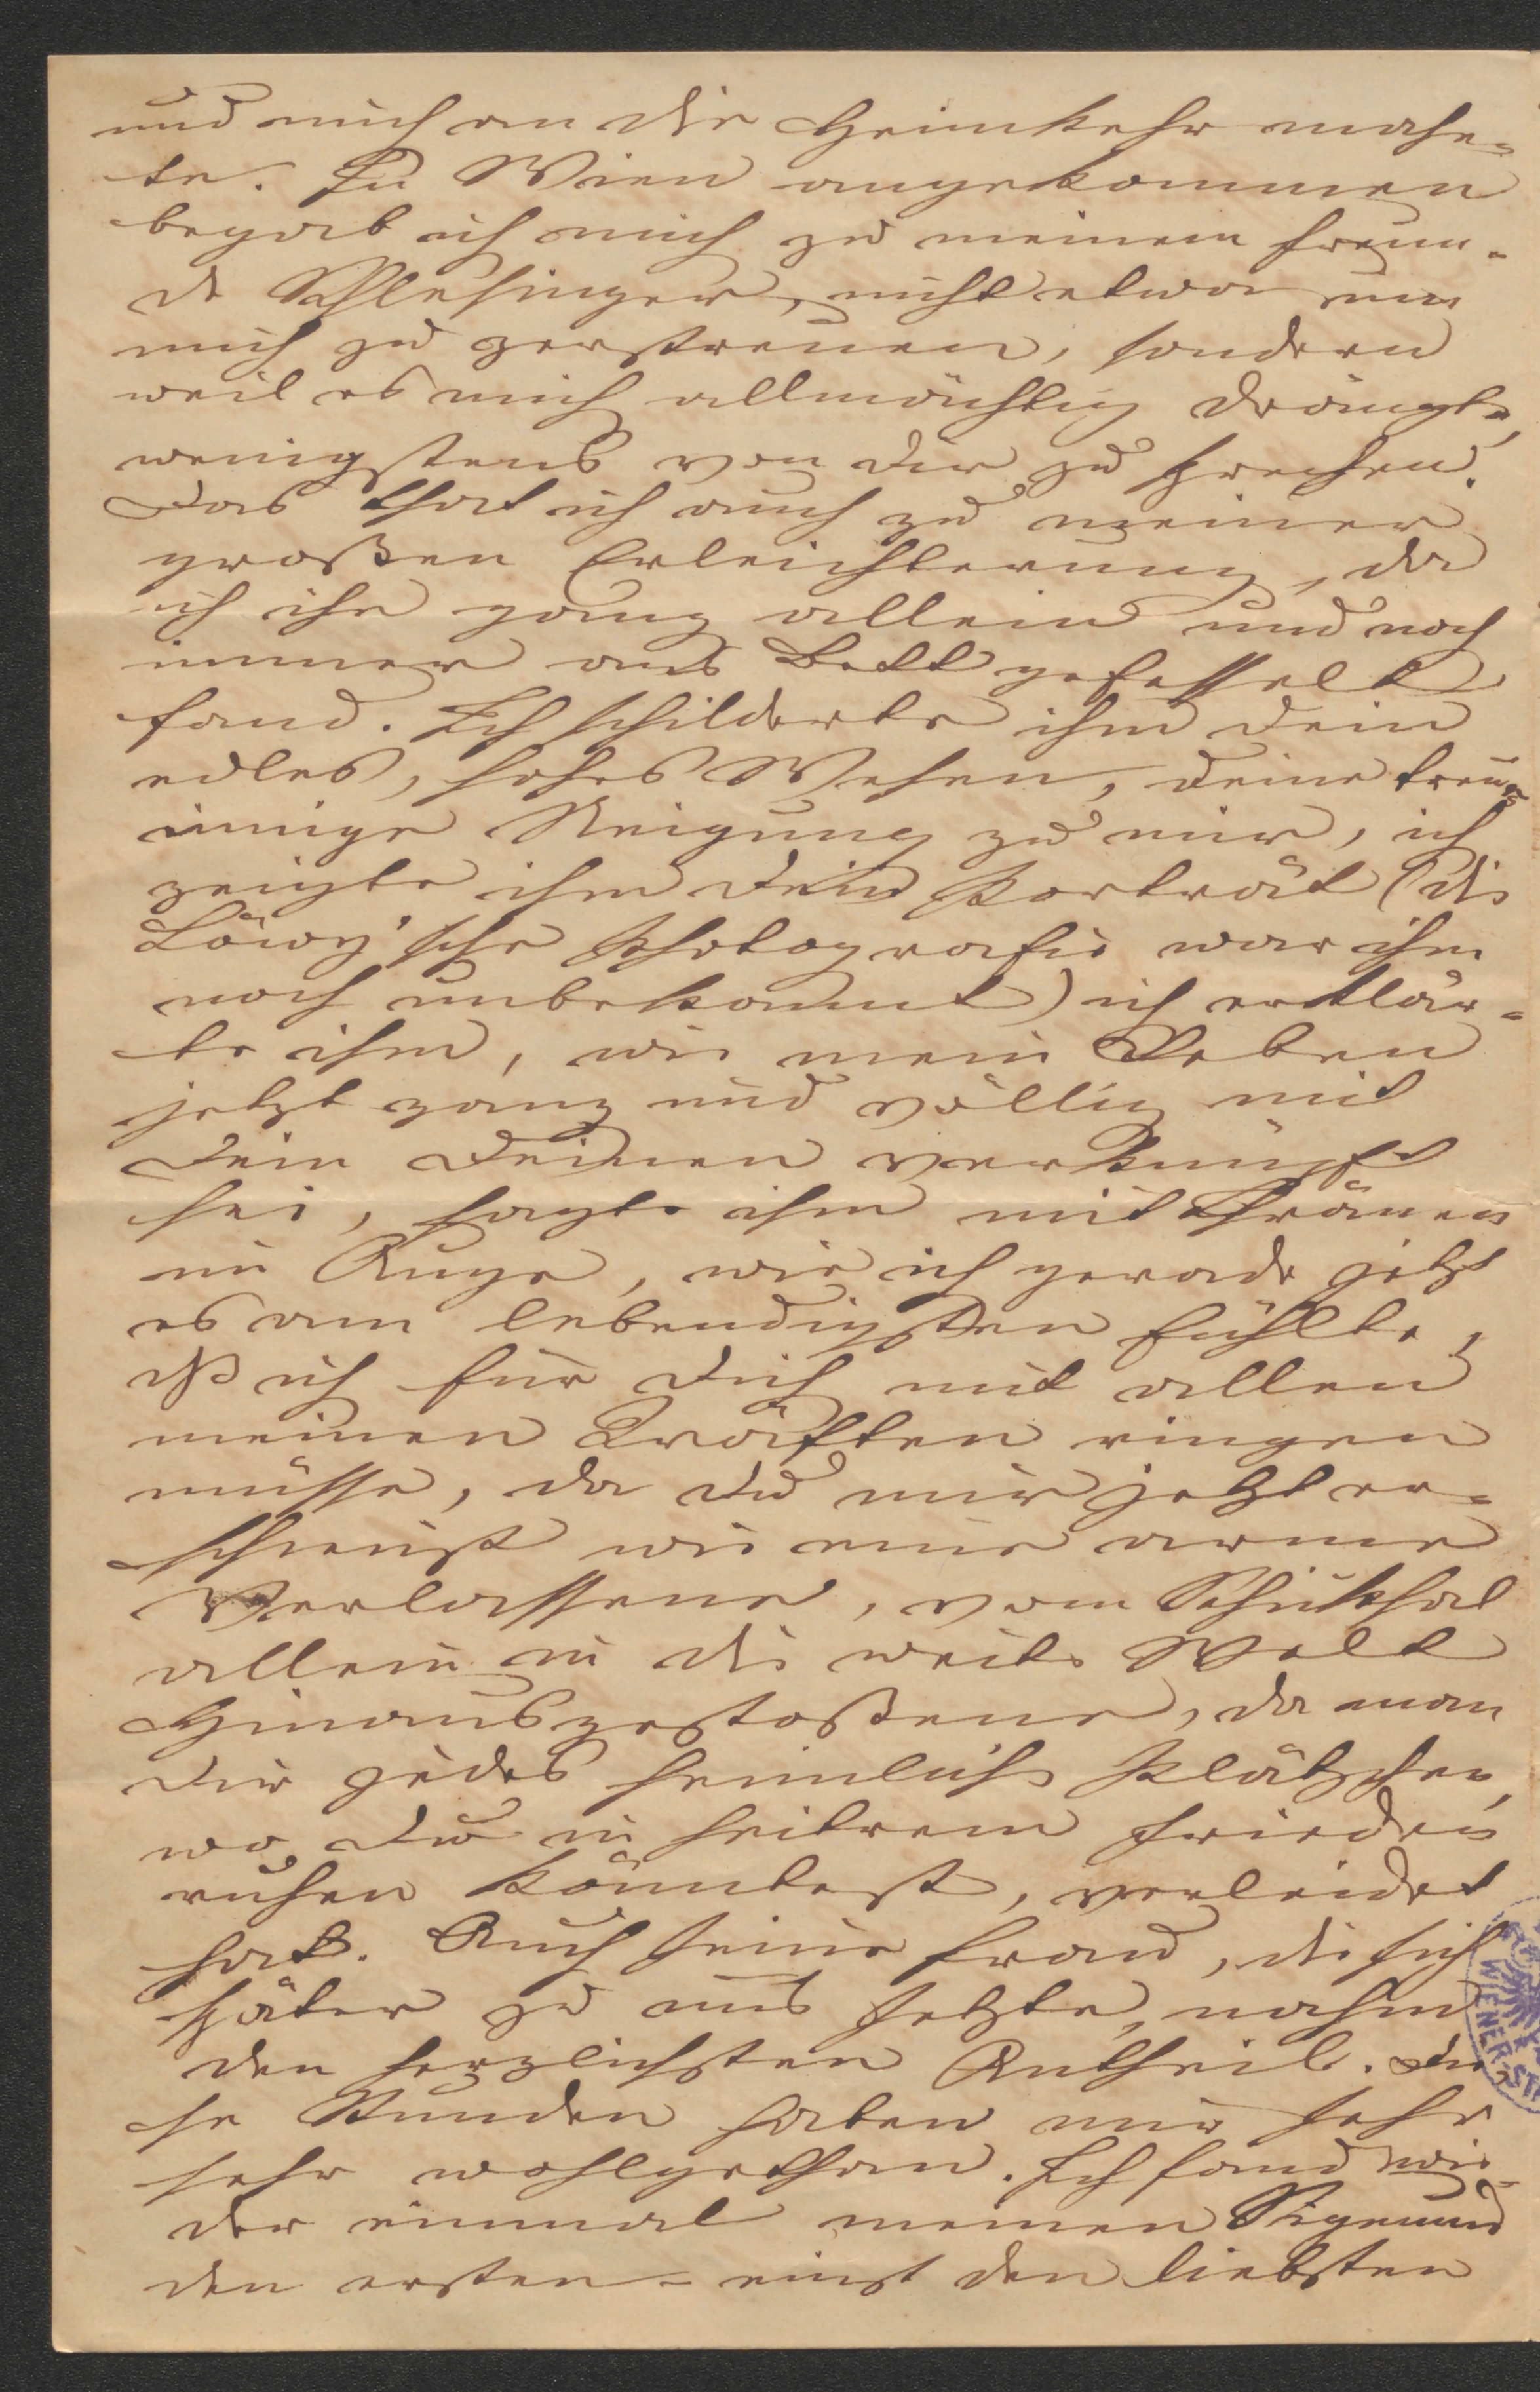 und mich an die Heimkehr mahn-
te. In Wien angekommen
begab ich mich zu meinem Freun-
de Schlesinger, nicht etwa um
mich zu zerstreuen, sondern
weil es mich allmächtig drängte,
wenigstens von Dir zu sprechen.
Das that ich auch zu meiner
großen Erleichterung, da
ich ihn ganz allein und noch
immer ans Bett gefesselt
fand. Ich schilderte ihm Dein
edles, hohes Wesen, Deine treu-
innige Neigung zu mir, ich
zeigte ihm Dein Porträt (die
Löwy'sche Photografie war ihm
noch unbekannt) ich erklär-
te ihm, wie mein Leben
jetzt ganz und völlig mit
dem Deinen verknüpft
sei, sagte ihm mit Thränen
im Auge, wie ich gerade jetzt
es am lebendigsten fühlte,
dß ich für Dich mit allen
meinen Kräften ringen
müsse, da Du mir jetzt er-
schienst wie eine arme
Verlassene, vom Schicksal
allein in die weite Welt
Hinausgestoßene, da man
Dir jedes heimliche Plätzchen,
wo Du in heitrem Frieden
ruhen könntest, verleidet
hat. Auch seine Frau, die sich
später zu uns setzte, nahm
den herzlichsten Antheil. Die-
se Stunden haben mir sehr
sehr wohlgethan. Ich fand wie-
der einmal meinen Sigmund
den ersten - einst den liebsten
WIENER-ST